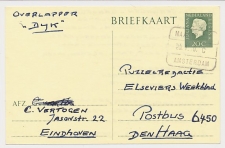 OVERLAPPER
"DYK"
BRIEFKAART
20c
AMSTERDAM
PUZZELREDACTIE
ELSEVIERS WEEKBLAD
POSTBUS 6450
DEN HAAG
AFZ.
C. VERTOGEN
JASONSTR. 22
EINDHOVEN